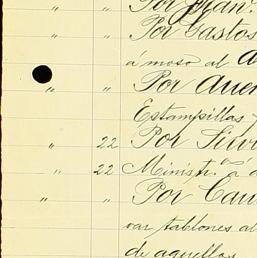 " " Por Fran.
" " Por Gastos
á moso al
" " Por
Estampillas
" 22 Por
" 22 Ministr.
" " Por
var tablones al
de aquellos